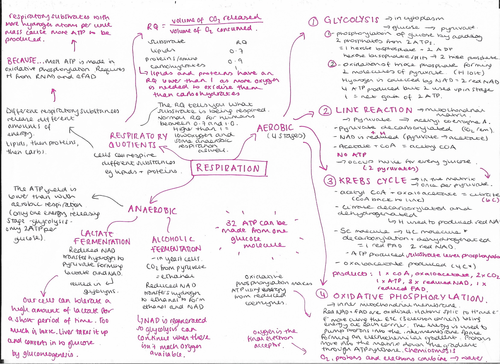 respiratory substrates with
more hydrogen atoms per unit
mass cause more ATP to be
produced.
BECAUSE... most ATP is made in
oxidative phosphorylation. Requires
H from RNAD and RFAD
Different respiratory substances
release different
amounts of
energy
Lipids, then protein,
then carbs.
RQ = volume of CO2 released
volume of O2 consumed.
substrate RQ
lipids 0.7
proteins/amino 0.9
carbohydrates
↳ lipids and proteins have an
RQ lower than 1 as more oxygen
is needed to oxidise them
than carbohydrates
The RQ tells you what
substrate is being respired.
Normal RQ for humans
between 0.7 and 1.0.
Higher than 1 =
short of oxygen and some
anaerobic respiration
as well.
RESPIRATORY
QUOTIENTS
cells can respire
different substances
eg lipids + proteins.
RESPIRATION
AEROBIC
(4 stages)
① GLYCOLYSIS → in cytoplasm
→ glucose → pyruvate
① phosphorylation of glucose by adding
2 phosphates from 2 ATP.
② oxidation of triose phosphate forming
2 molecules of pyruvate (3C)
Hydrogen is collected by NAD = 2 red NAD
4 ATP produced but 2 used up in stage
1 = net gain of 2 ATP
② LINK REACTION → mitochondrial
→ Pyruvate → acetyl coenzyme A.
- pyruvate decarboxylated (CO2 rem.)
- NAD is reduced (pyruvate → acetate)
- Acetate + CoA = acetyl CoA
NO ATP
→ occurs twice for every glucose
(2 pyruvates)
③ KREBS CYCLE → in the matrix
→ once per pyruvate.
- acetyl CoA + oxaloacetate = citrate
(CoA back to link) (6C)
- Citrate decarboxylated and
dehydrogenated
↳ H used to produce red NAD
- 5C molecule → 4C molecule
decarboxylation + dehydrogenated
= 1 red FAD 2 red NAD.
- ATP produced, substrate level phosphorylation
- oxaloacetate produced (4C)
products: 1 x CoA, oxaloacetate, 2x CO2
1 x ATP, 3x reduced NAD, 1x
reduced FAD.
④ OXIDATIVE PHOSPHORYLATION
→ inner mitochondrial membrane.
of energy as each carrier. The energy is used to
pump protons into the intermembrane space
forming an electrochemical gradient. Protons
move into the matrix down the gradient
through ATPsynthase. Chemiosmosis
O2, protons and electrons combine → water
ANAEROBIC
The ATP yield is
lower than with
aerobic respiration
(only one energy releasing
stage - glycolysis -
only 2ATP per
glucose).
LACTATE
FERMENTATION
Reduced NAD
transfers hydrogen to
pyruvate forming
lactate and NAD
↓
reused in
glycolysis.
Our cells can tolerate a
high amount of lactate for
a short period of time. Too
much is toxic. Liver takes it up
and converts it to glucose
by gluconeogenesis.
ALCOHOLIC
FERMENTATION
- in yeast cells.
CO2 from pyruvate
= ethanal
Reduced NAD
transfers hydrogen
to ethanal to form
ethanol and NAD
↳ NAD is regenerated
so glycolysis can
continue when there
isn't much oxygen
available.
32 ATP can be
made from one
glucose
molecule
oxidative
phosphorylation makes
ATP using energy
from reduced
coenzymes.
oxygen is the
final electron
acceptor